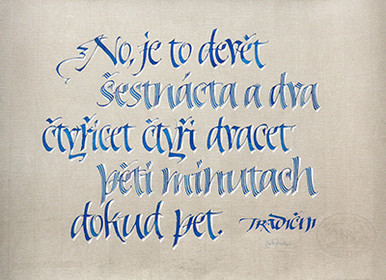 No, je to devět
šestnácta a dva
čtyřicet čtyři dvacet
pěti minutach
dokud pet. TRADIČNJI